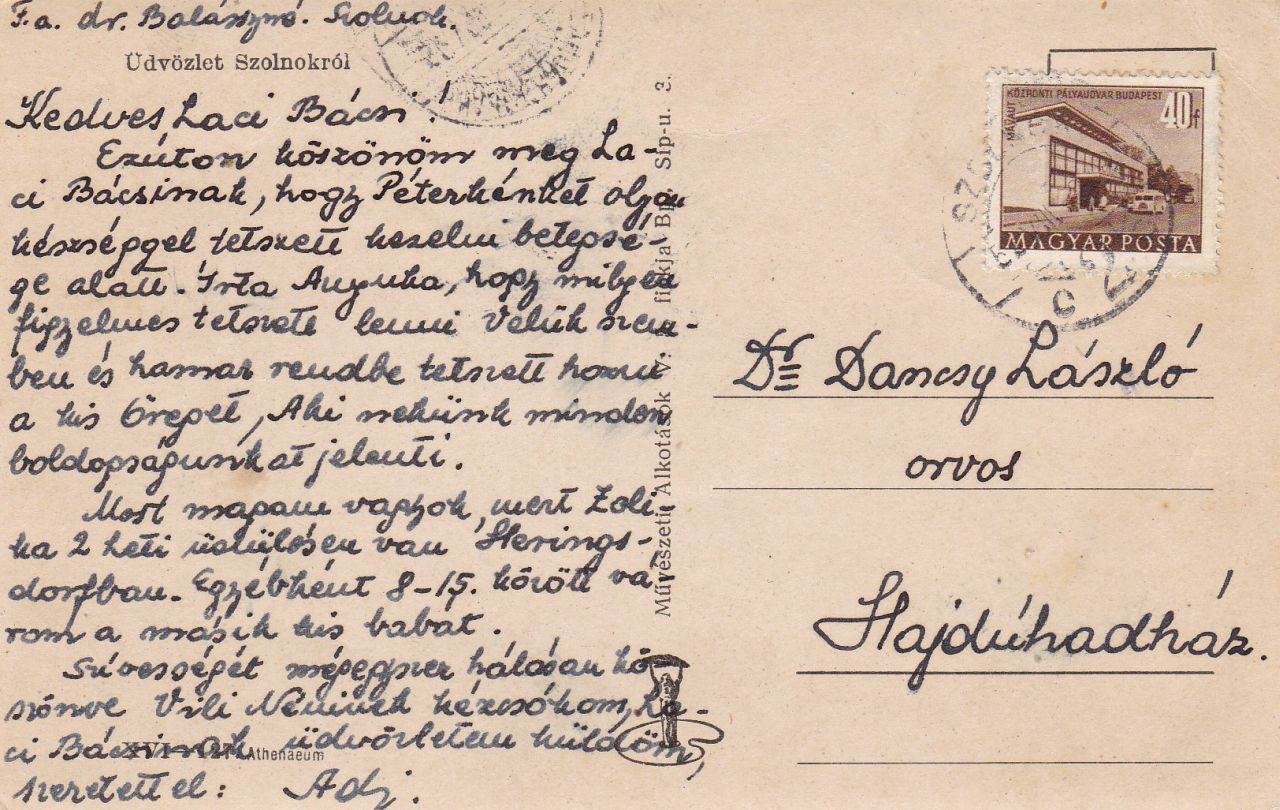 F.a. dr. Balásszné. Szolnok.
Üdvözlet Szolnokról
Kedves Laci Bácsi!
Ezúton köszönöm meg La-
ci Bácsinak, hogy Péterkénket olyan
készséggel tetszett kezelni betegsé-
ge alatt. Írta Anyuka, hogy milyen
figyelmes tetszett lenni Velük szem-
ben és hamar rendbe tetszett hozni
a kis Öreget, Aki nekünk minden
boldogságunkat jelenti.
Most magam vagyok, mert Zoli-
ka 2 heti üdülésen van Herings-
dorfban. Egyébként 8-15. között vá-
rom a másik kis babát.
Szívességét mégegyszer hálásan kö-
szönve Vili Néninek kézcsókom, La-
ci Bácsinak üdvözletem küldöm,
szeretettel: Adj.
Athenaeum
Művészeti Alkotások V. fiókja Bp. Síp-u. 3.
MÁVAUT KÖZPONTI PÁLYAUDVAR BUDAPEST
40f
MAGYAR POSTA
Dr Dancsy László
orvos
Hajdúhadház.